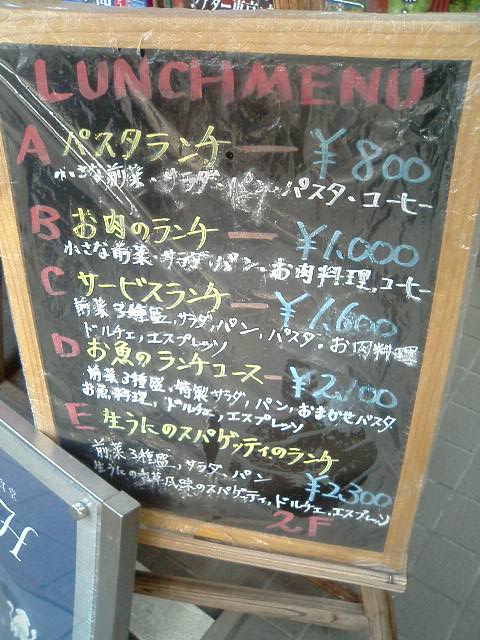 LUNCH MENU
A パスタランチ ー ¥800
小さな前菜、サラダ、パン、パスタ、コーヒー
B お肉のランチ ー ¥1,000
小さな前菜、サラダ、パン、お肉料理、コーヒー
C サービスランチ ー ¥1,600
前菜3種盛、サラダ、パン、パスタ、お肉料理
ドルチェ、エスプレッソ
D お魚のランチコース ー ¥2,100
前菜3種盛、特製サラダ、パン、おまかせパスタ
お魚料理、ドルチェ、エスプレッソ
E 生うにのスパゲッティのランチ
前菜3種盛、サラダ、パン ¥2,300
生うにの 風味のスパゲッティ、ドルチェ、エスプレッソ
2F